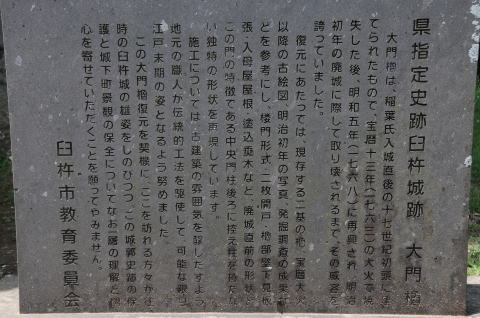 県指定史跡臼杵城跡 大門櫓
大門櫓は、稲葉氏入城直後の十七世紀初頭に建
てられたもので、宝暦十三年(一七六三)の大火で焼
失した後、明和五年(一七六八)に再興され、明治
初年の廃城に際して取り壊されるまで、その威容を
誇っていました。
復元にあたっては、現存する二基の櫓、宝暦大火
以降の古絵図、明治初年の写真、発掘調査の成果な
どを参考にし、楼門形式、二枚開戸、櫓部竪下見板
張、入母屋屋根、塗込垂木など、廃城直前の形状と
この門の特徴である中央門柱後ろに控え柱を持たな
い独特の形状を再現しています。
施工については、古建築の雰囲気を醸しだすよう
地元の職人が伝統的工法を駆使して、可能な限り
江戸末期の姿となるよう努めました。
この大門櫓復元を契機に、ここを訪れる方々が往
時の臼杵城の雄姿をしのびつつ、この城郭史跡の保
護と城下町景観の保全についてなお一層の理解と関
心を寄せていただくことを願ってやみません。
臼杵市教育委員会